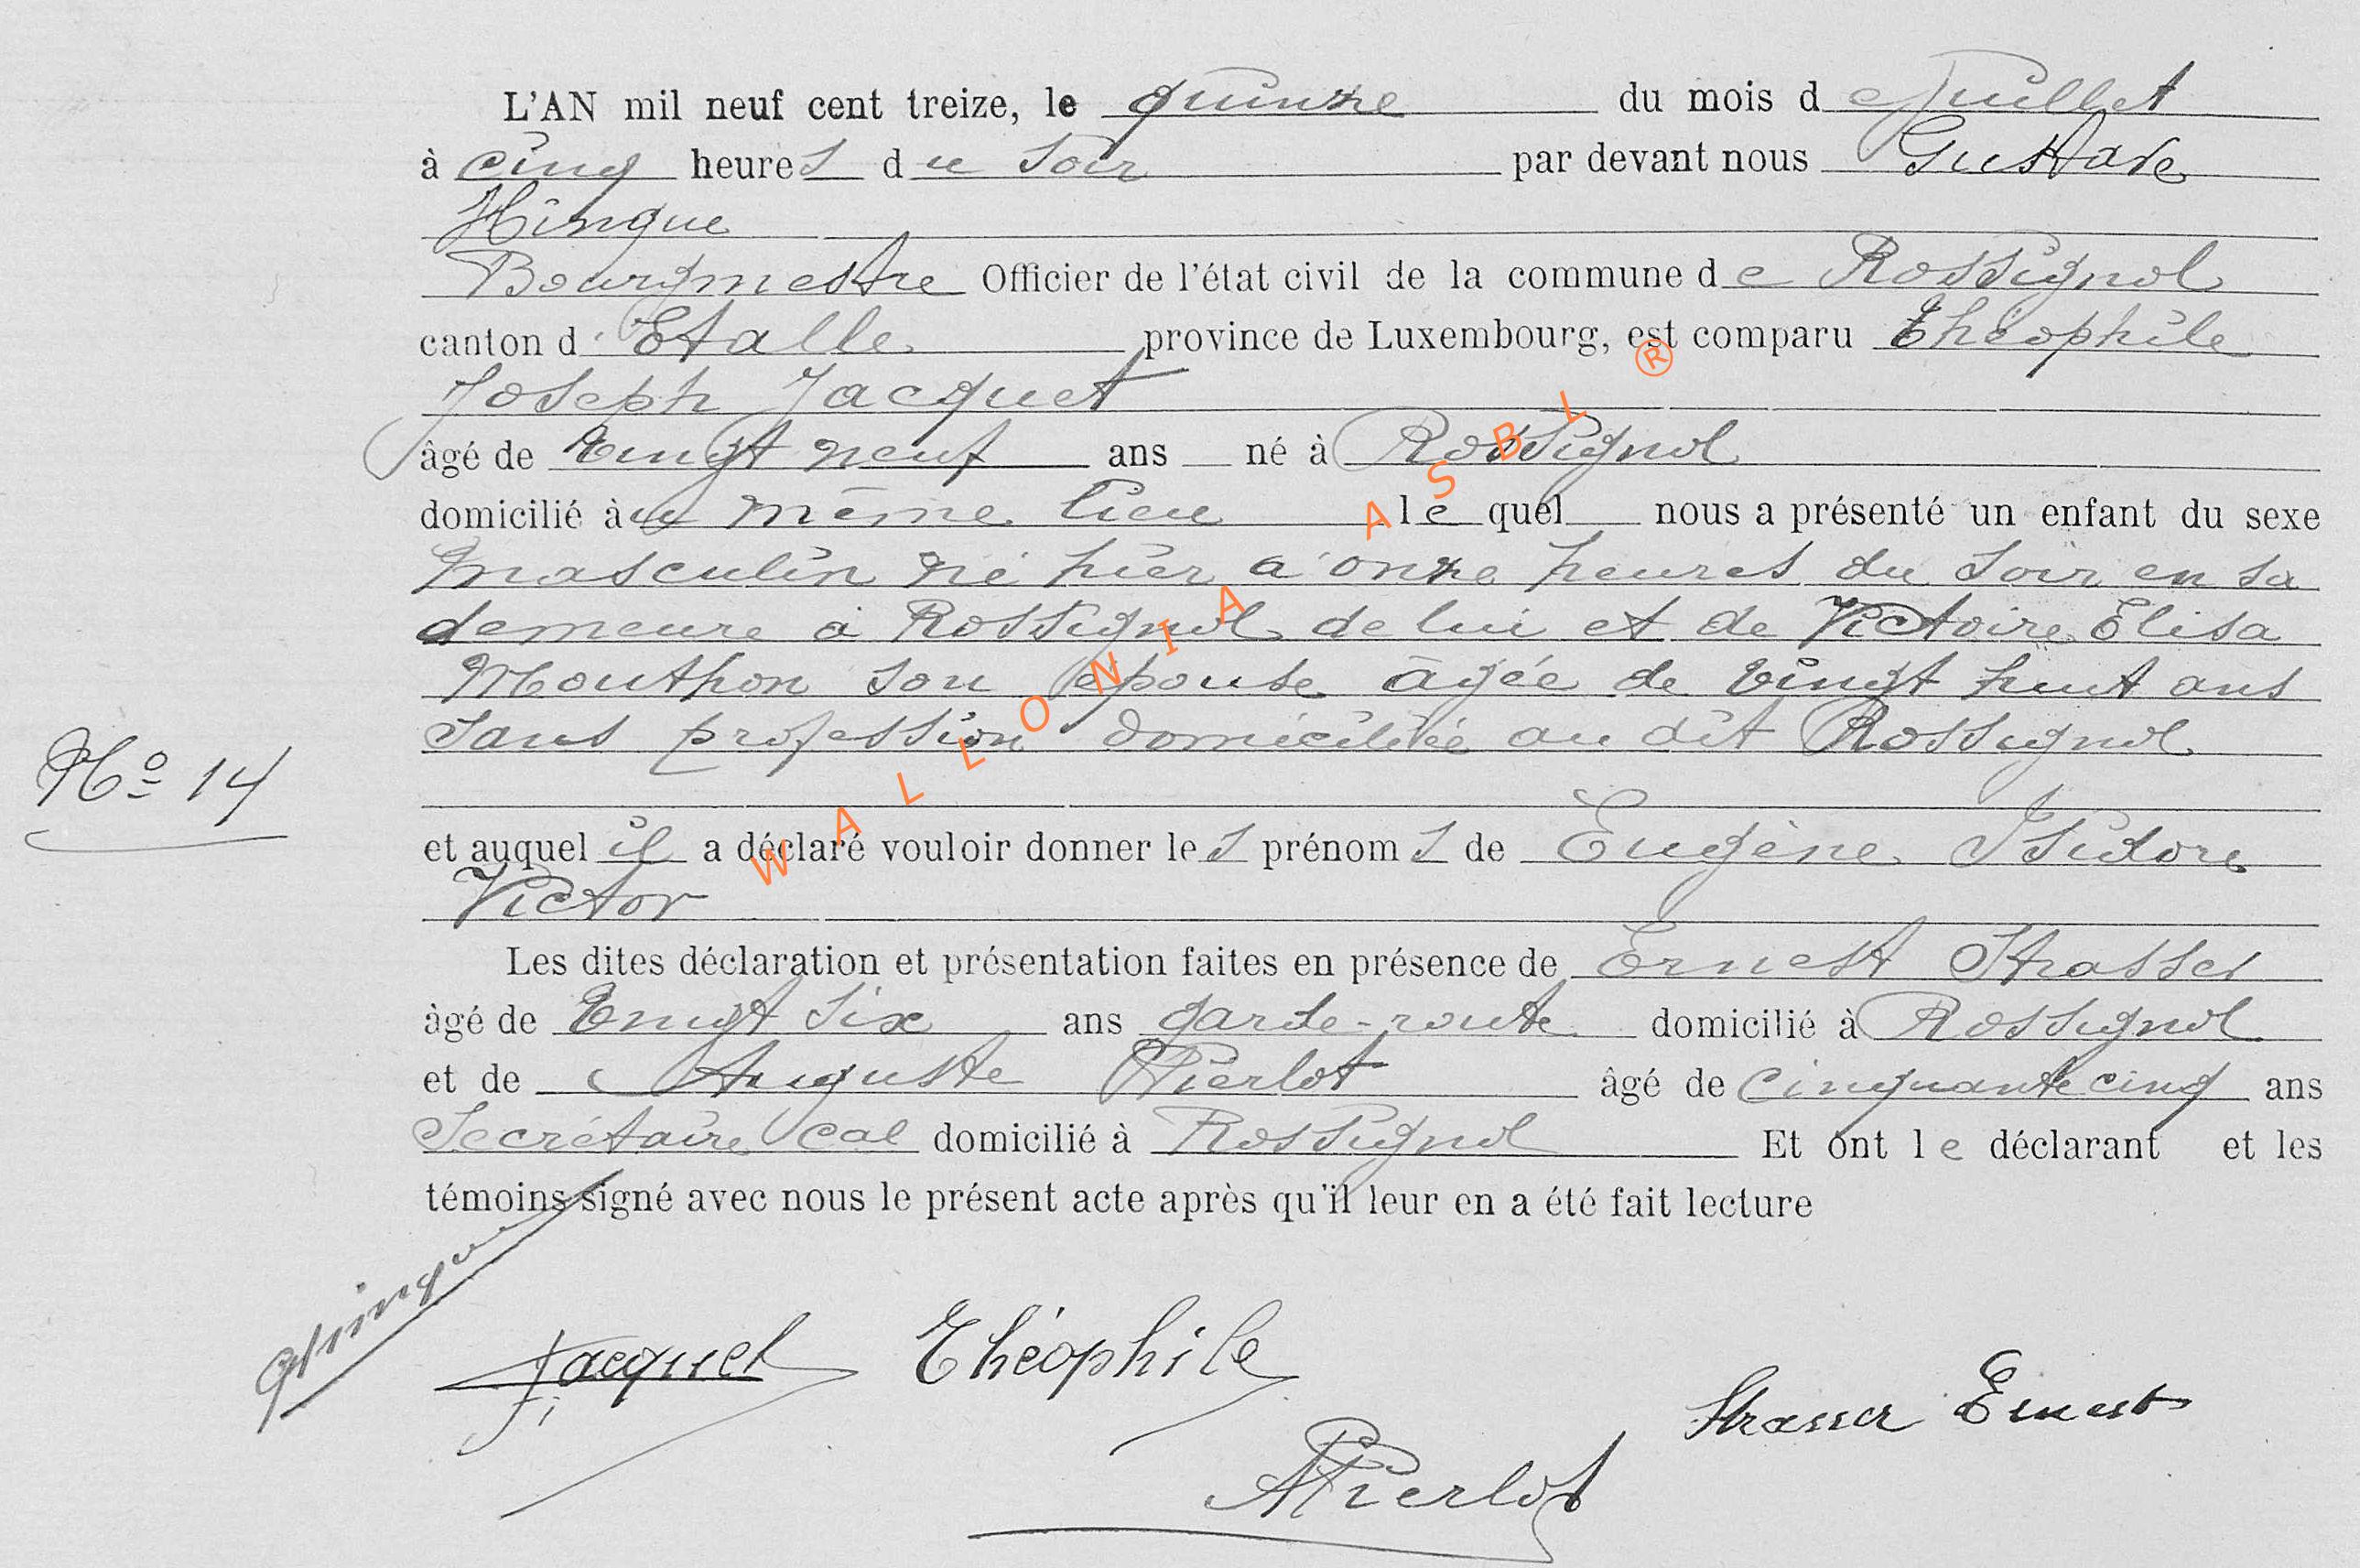 L'AN mil neuf cent treize, le quinze du mois de Juillet
à cinq heures du soir par devant nous Gustave
Hinque
Bourgmestre Officier de l'état civil de la commune de Rossignol
canton d'Etalle province de Luxembourg, est comparu Théophile
Joseph Jacquet
âgé de vingt neuf ans né à Rossignol
domicilié au même lieu lequel nous a présenté un enfant du sexe
masculin né hier à onze heures du soir en sa
demeure à Rossignol de lui et de Victoire Elisa
Mouthon son épouse âgée de vingt huit ans
sans profession domiciliée au dit Rossignol
No 14
et auquel il a déclaré vouloir donner les prénoms de Eugène Isidore
Victor
Les dites déclaration et présentation faites en présence de Ernest Strasser
âgé de vingt six ans garde-route domicilié à Rossignol
et de Auguste Pierlot âgé de cinquante cinq ans
Secrétaire cal domicilié à Rossignol Et ont le déclarant et les
témoins signé avec nous le présent acte après qu'il leur en a été fait lecture
GHinque
Jacquet Théophile
Strasser Ernest
APierlot
WALLONIA ASBL ®